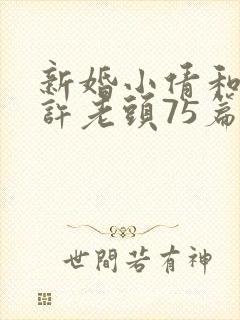 新婚小倩和
許老頭75篇
世間若有神